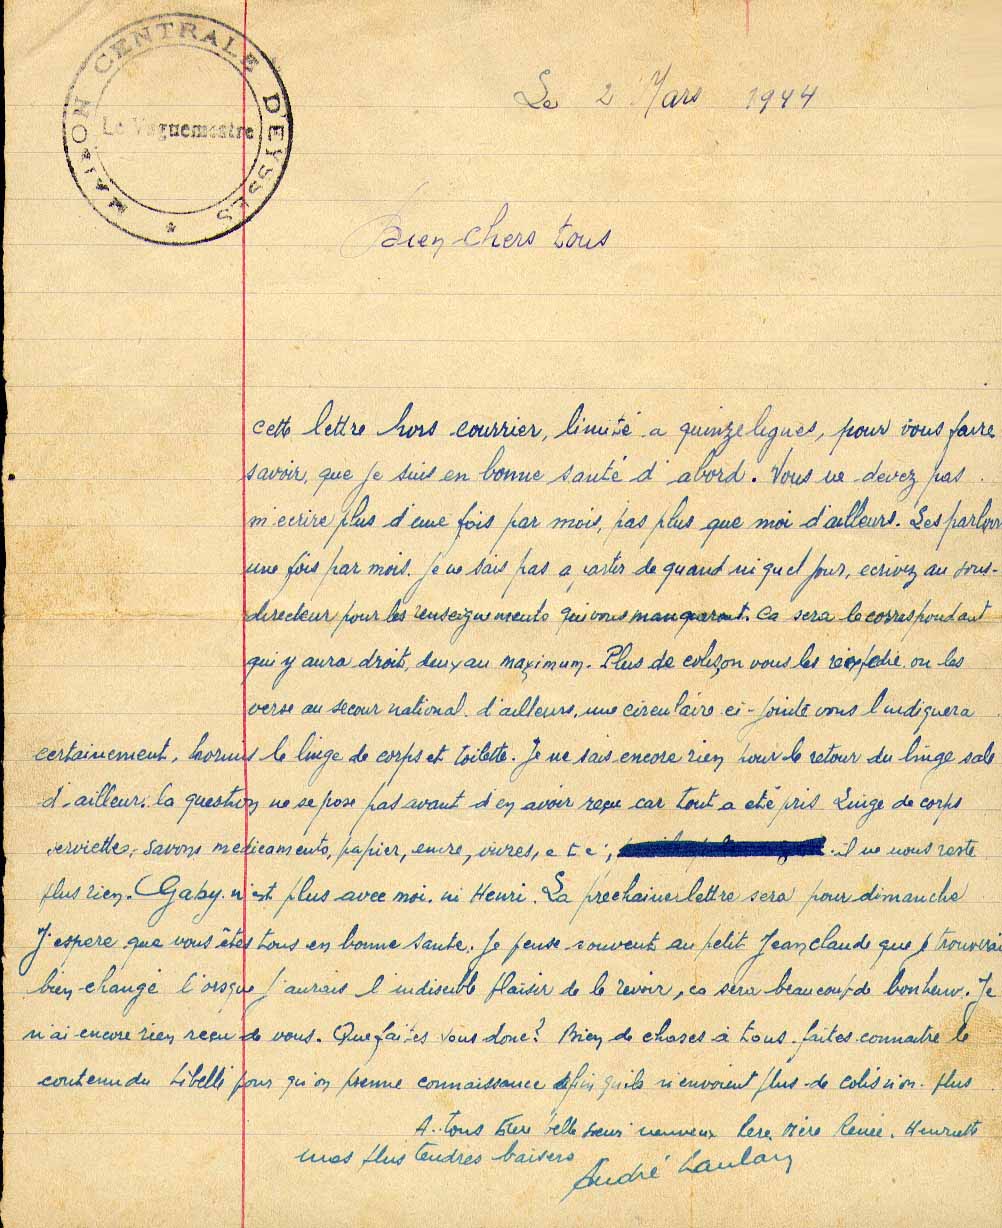 MAISON CENTRALE D'EYSSES
Le Vaguemestre
Le 2 Mars 1944
Bien chers tous
cette lettre hors courrier, limité a quinze lignes, pour vous faire
savoir, que je suis en bonne santé d'abord. Vous ne devez pas
m'ecrire plus d'une fois par mois, pas plus que moi d'ailleurs. Les parloirs
une fois par mois. Je ne sais pas a partir de quand ni quel jour, ecrivez au sous-
directeur pour les renseignements qui vous manqueront. Ca sera le correspondant
qui y aura droit, deux au maximum. Plus de colis, on vous les réexpedie ou les
verse au secour national. d'ailleurs, une circulaire ci-jointe vous l'indiquera
certainement, hormis le linge de corps et toilette. Je ne sais encore rien pour le retour du linge sale
d'ailleurs la question ne se pose pas avant d'en avoir reçu car tout a eté pris Linge de corps
serviettes, savons medicaments, papier, encre, vivres, etc, il ne nous reste
plus rien. Gaby n'est plus avec moi. ni Henri. La prochaine lettre sera pour dimanche
J'espere que vous êtes tous en bonne sante. Je pense souvent au petit Jean claude que je trouverai
bien changé l'orsque j'aurais l'indiscible plaisir de le revoir, ca sera beaucoup de bonheur. Je
n'ai encore rien reçu de vous. Que faites vous donc? Bien de choses à tous. faites connaitre le
contenu du Libellé pour qu'on prenne connaissance afin qu'ils n'envoient plus de colis non plus
A tous frère belle soeur neuveux Pere Mère Renée. Henriette
mes plus tendres baisers
André Laulan